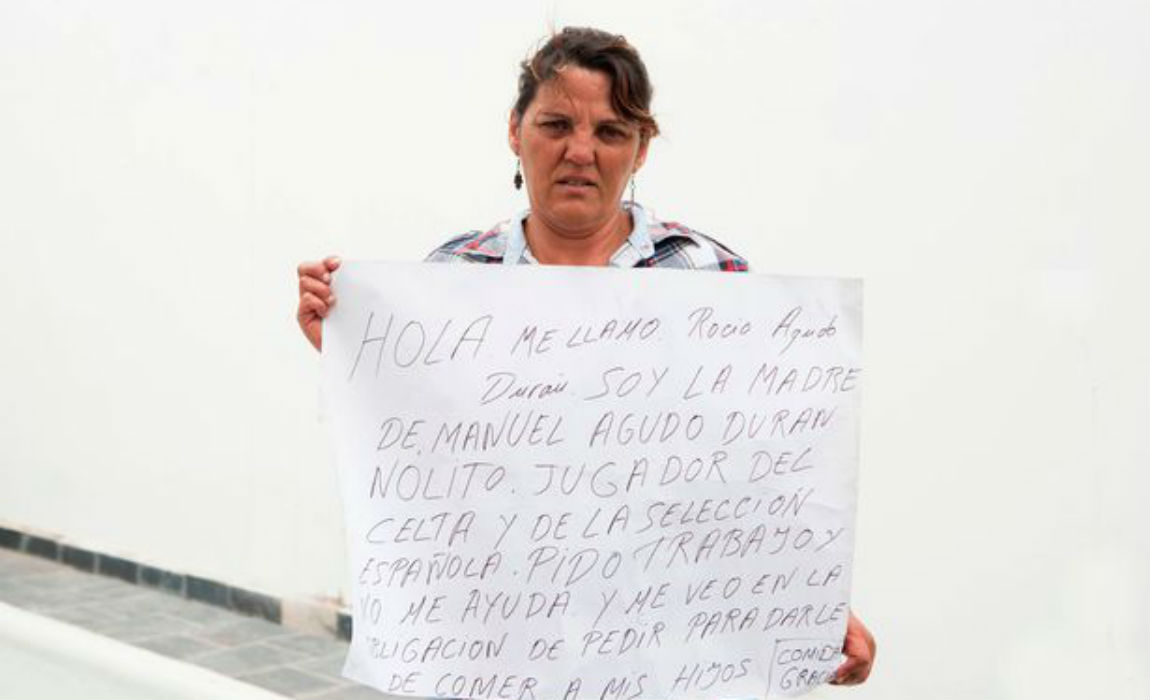 HOLA. ME LLAMO. Rocio Agudo
Duran. SOY LA MADRE
DE, MANUEL AGUDO DURAN
NOLITO. JUGADOR DEL
CELTA Y DE LA SELECCIÓN
ESPAÑOLA. PIDO TRABAJO Y
ME AYUDA Y ME VEO EN LA
BLIGACION DE PEDIR PARA DARLE
DE COMER A MIS HIJOS COMIDA
GRACI